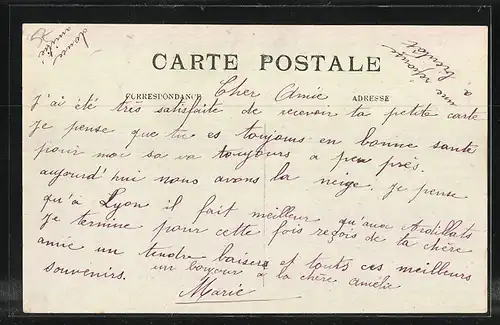 douce
amitié
à une réponse
à bientôt
CARTE POSTALE
CORRESPONDANCE
ADRESSE
Cher Amie
J'ai été très satisfaite de recevoir ta petite carte
Je pense que tu es toujours en bonne santé
pour moi sa va toujours a peu près.
aujourd'hui nous avons la neige. je pense
qu'à Lyon il fait meilleur qu'aux Ardillats
Je termine pour cette fois reçois de ta chère
amie un tendre baisers et touts ces meilleurs
souvenirs.
un bonjour à la chère Amélie
Marie